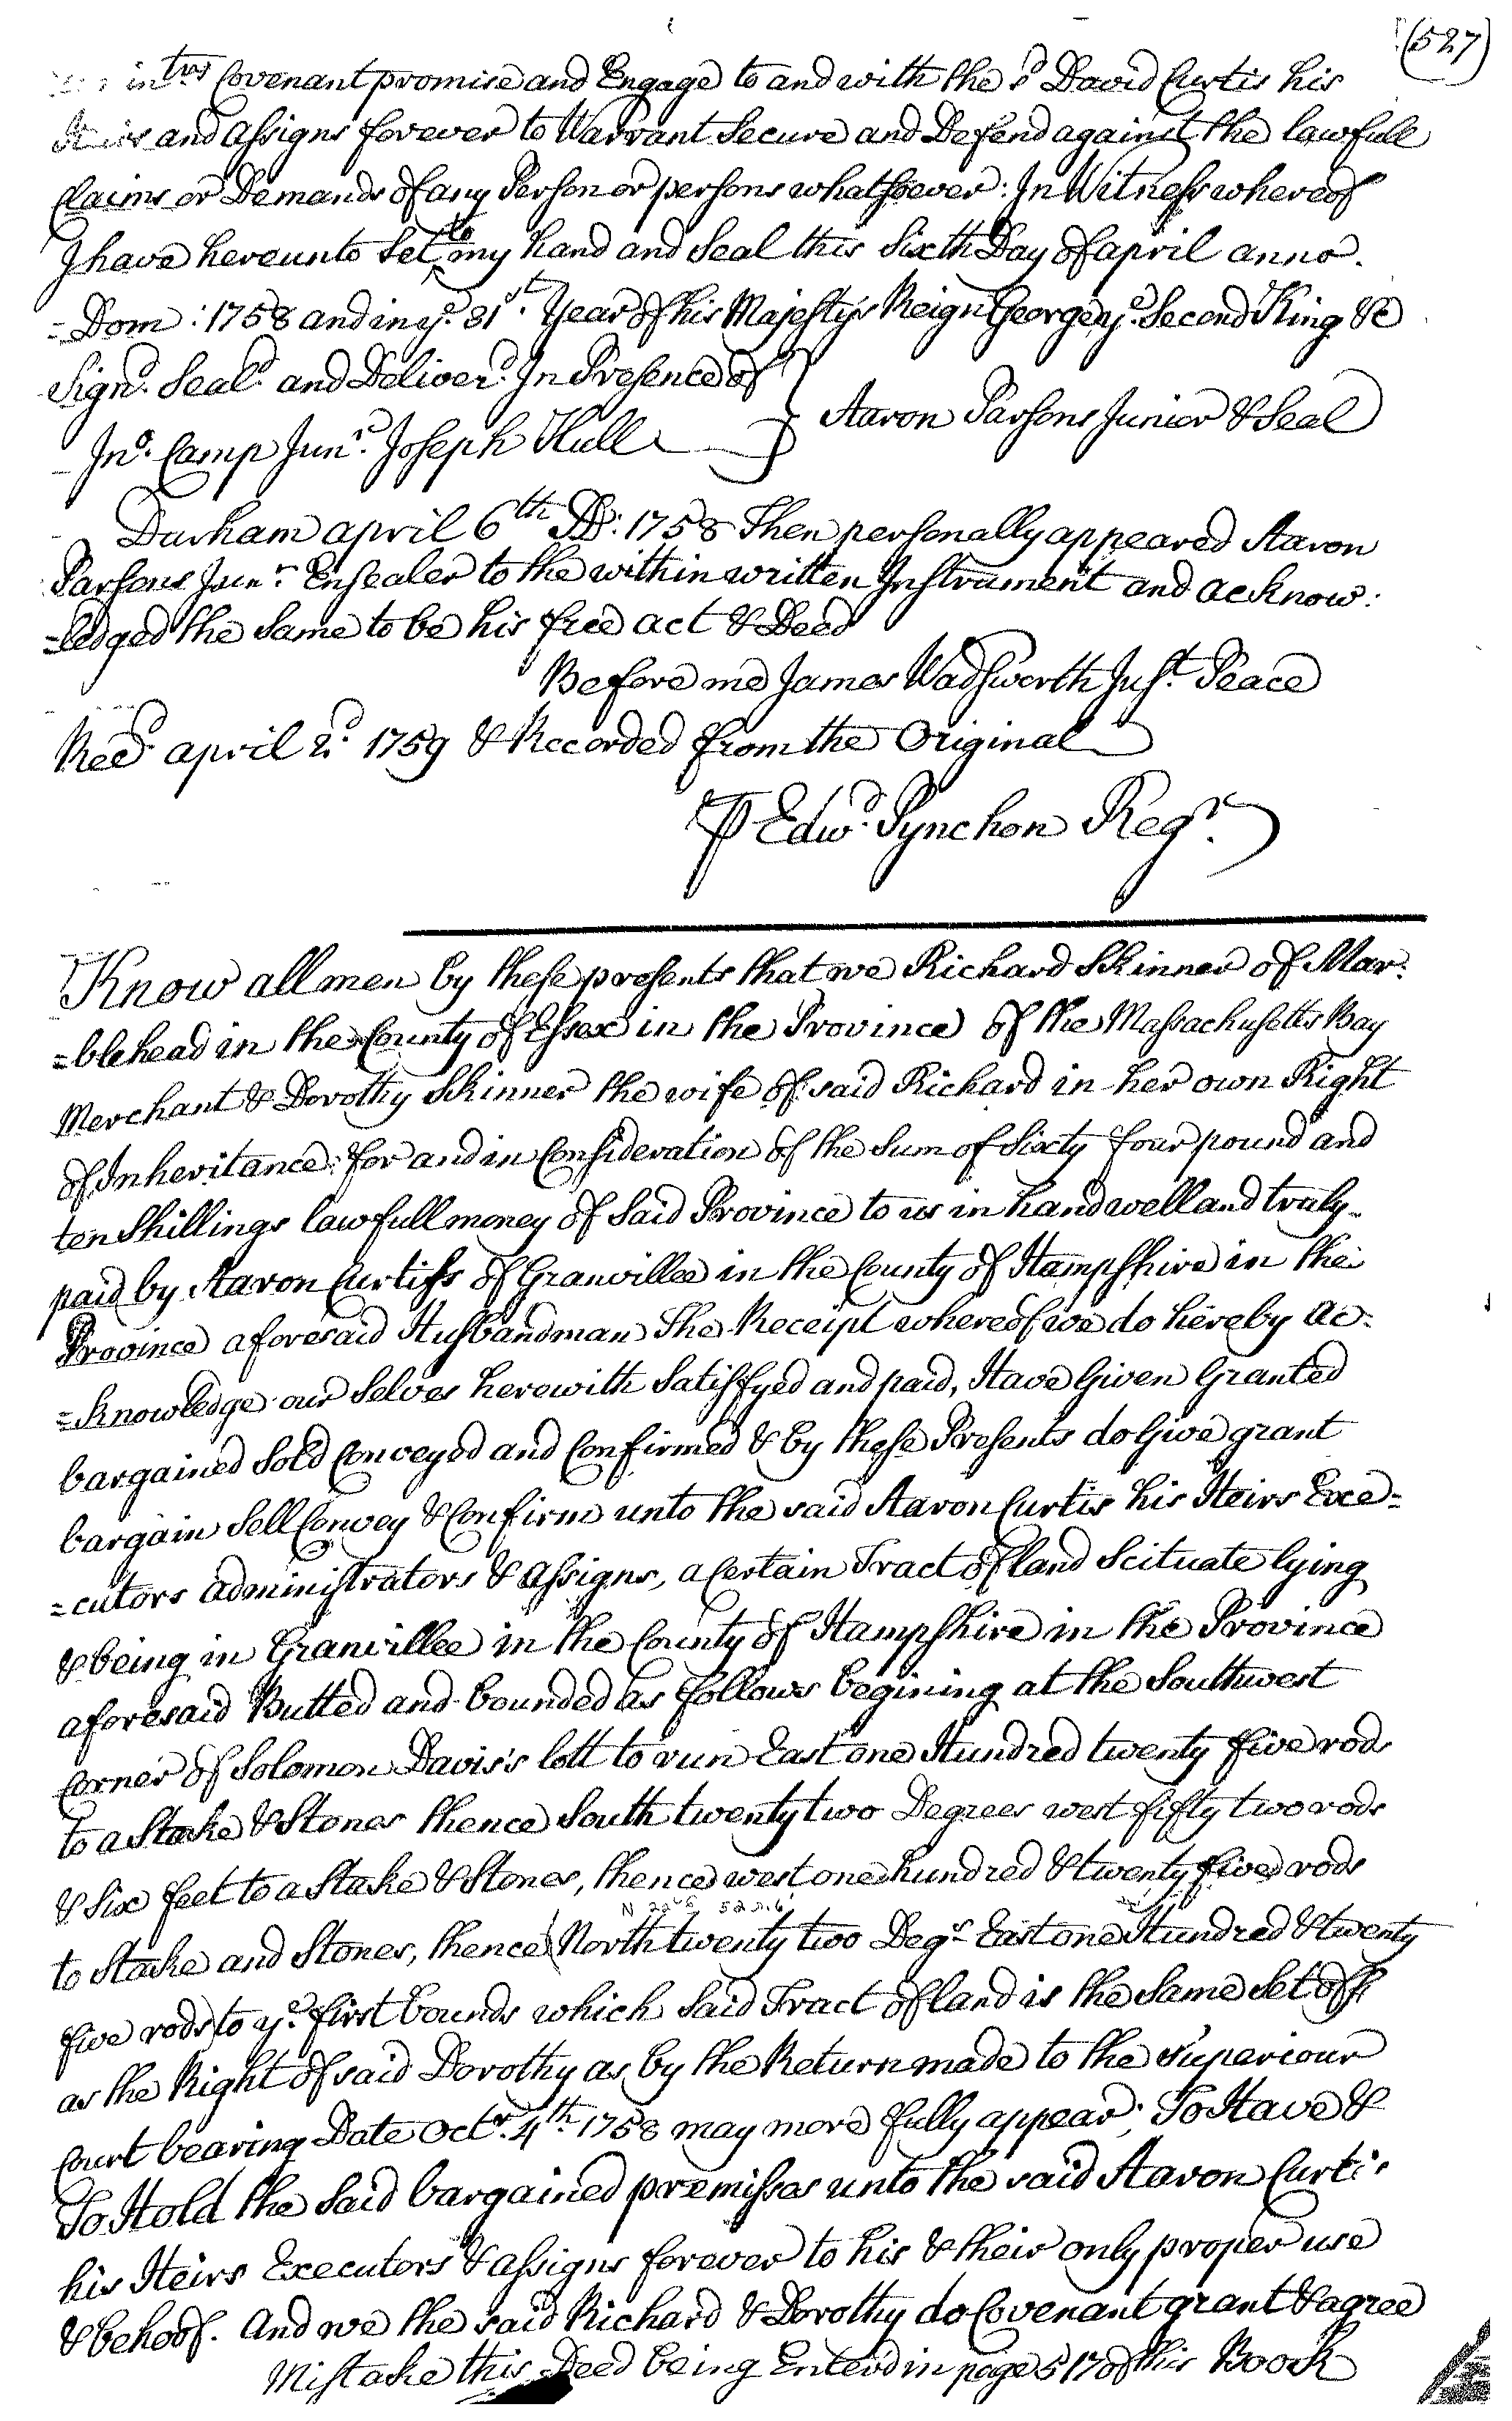 (527)
in trs Covenant promise and Engage to and with the sd David Curtis his
Heirs and assigns forever to Warrant Secure and Defend against the lawfull
Claims or Demands of any Person or persons whatsoever: In Witness whereof
I have hereunto Set to my hand and Seal this Sixth Day of april anno.
=Dom: 1758 and in ye. 31st. Year of his Majestys Reign George ye. Second King &c
Signd. Seald. and Deliverd. In Presence of
Jno. Camp Junr. Joseph Hull } Aaron Parsons Junior & Seal
Durham april 6th AD: 1758 Then personally appeared Aaron
Parsons Junr. Ensealer to the within written Instrument and acknow:
=ledged the Same to be his free act & Deed
Before me James Wadsworth Just. Peace
Recd. april 2d. 1759 & Recorded from the Original
P Edwd. Pynchon Regr.
Know all men by these presents that we Richard Skinner of Mar:
=blehead in the County of Essex in the Province of the Massachusetts Bay
Merchant & Dorothy Skinner the wife of said Richard in her own Right
of Inheritance: for and in Consideration of the Sum of Sixty four pound and
ten Shillings lawfull money of Said Province to us in hand well and truly
paid by Aaron Curtiss of Granvillee in the County of Hampshire in the
Province aforesaid Husbandman The Receipt whereof we do hereby ac:
=knowledge our Selves herewith Satisfyed and paid, Have Given Granted
bargained Sold Conveyed and Confirmed & by these Presents do Give grant
bargain Sell Convey & Confirm unto the said Aaron Curtis his Heirs Exe=
=cutors administrators & assigns, a Certain Tract of land Scituate lying
& being in Granvillee in the County of Hampshire in the Province
aforesaid Butted and bounded as follows begining at the Southwest
Corner of Solomon Davis's lott to run East one Hundred twenty five rods
to a Stake & Stones thence South twenty two Degrees west fifty two rods
& Six feet to a Stake & Stones, thence west one hundred & twenty five rods
N 22d E 52 r. 6
to Stake and Stones, thence (North twenty two Degrs East one Hundred & twenty
five rods) to ye. first bounds which Said Tract of land is the Same Set off
as the Right of said Dorothy as by the Return made to the Superiour
Court bearing Date Octr. 4th. 1758 may more fully appear; To Have &
To Hold the Said bargained premisses unto the said Aaron Curtis
his Heirs Executors & assigns forever to his & their only proper use
& behoof. And we the said Richard & Dorothy do Covenant grant & agree
Mistake this Deed being Enterd in page 517 of this Book